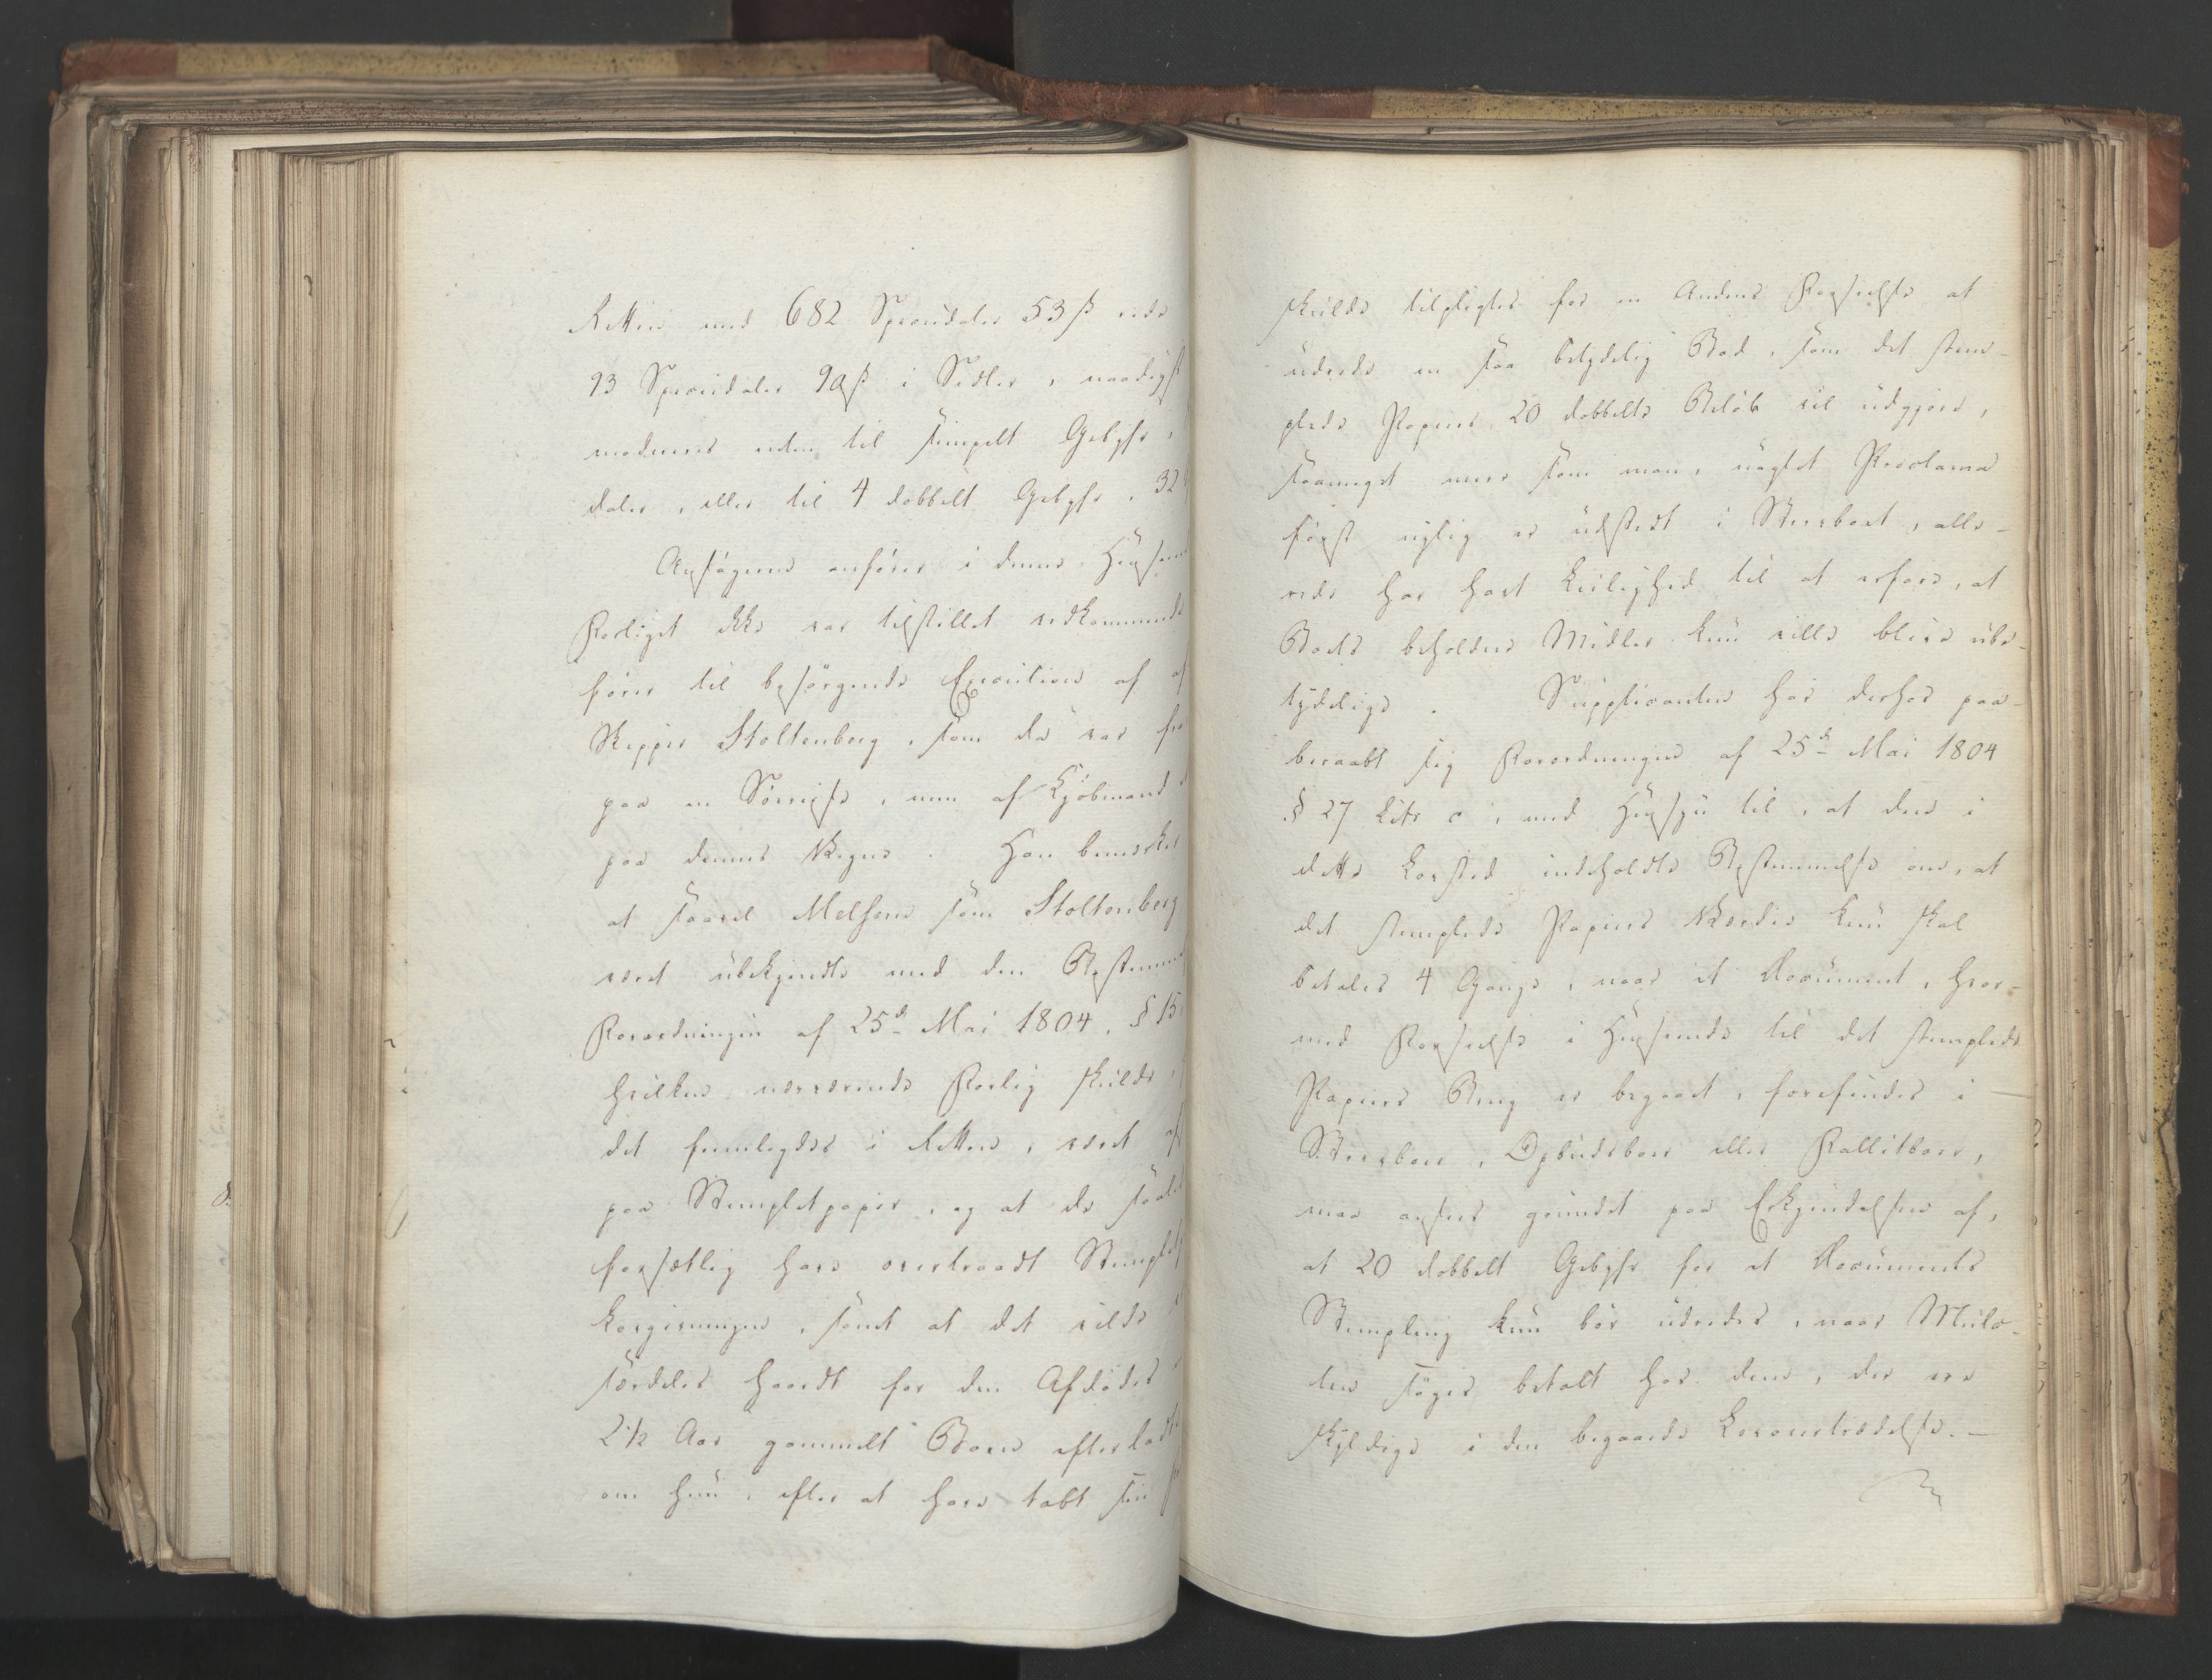 Retten med 682 Speciedaler 53 ß rede
93 Speciedaler 90 ß i Sedler, naadigst
modereres enten til simpelt Gebyhr,
daler, eller til 4 dobbelt Gebyhr, 32
Ansøgeren anfører i denne Hensee
Forliget ikke var tilstillet vedkommende
fører til besørgende Execution af
Skipper Stoltenberg, som da var fra
paa en Søreise, men af Kjøbmand
paa dennes Vegne. Han bemærker
at saavel Melsens som Stoltenberg
været ubekjendte med den Bestemm
Forordningen af 25de Mai 1804, § 15,
hvilken nærværende Forlig skulde,
det fremlagdes i Retten, været
paa Stemplet papir, og at de saale
forsætlig have overtraadt Stempl
Lovgivningen, samt at det vilde
særdeles haardt for den Afdødes
2½ Aar gammelt Barn efterladte
om hun, efter at have tabt sin
skulde tilpligtes for en Andens Forseelse at
udrede en saa betydelig Bod, som det stem-
plede Papirs 20 dobbelte Beløb vil udgjøre,
saameget mere som man, uagtet Proclama
først nylig er udstedt i Sterboet, alle-
rede har havt Leilighed til at erfare, at
Boets beholdne Midler kun ville blive ube-
tydelige. Supplicanten har derhos paa-
beraabt sig Forordningen af 25de Mai 1804
§ 27 Litr c, med Hensyn til, at den i
dette Lovsted indeholdte Bestemmelse om, at
det stemplede Papirs Værdie kun skal
betales 4 Gange, naar et Document, hvor-
med Forseelse i Henseende til det stemplede
Papirs Brug er begaaet, forefindes i
Sterboer, Opbudsboer eller Fallitboer,
maa ansees grundet paa Erkjendelsen af,
at 20 dobbelt Gebyhr for et Documents
Stempling kun bør udredes, naar Mulc-
ten søges betalt hos dem, der ere
skyldige i den begaaede Lovovertrædelse. —